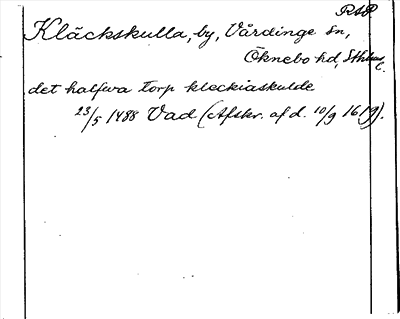 RAP
Kläckskulla, by, Vårdinge sn,
Öknebo hd, Sthms l.
det halfwa torp kleckiaskulde
23/5 1488 Vad (Afskr. af d. 10/9 1619).